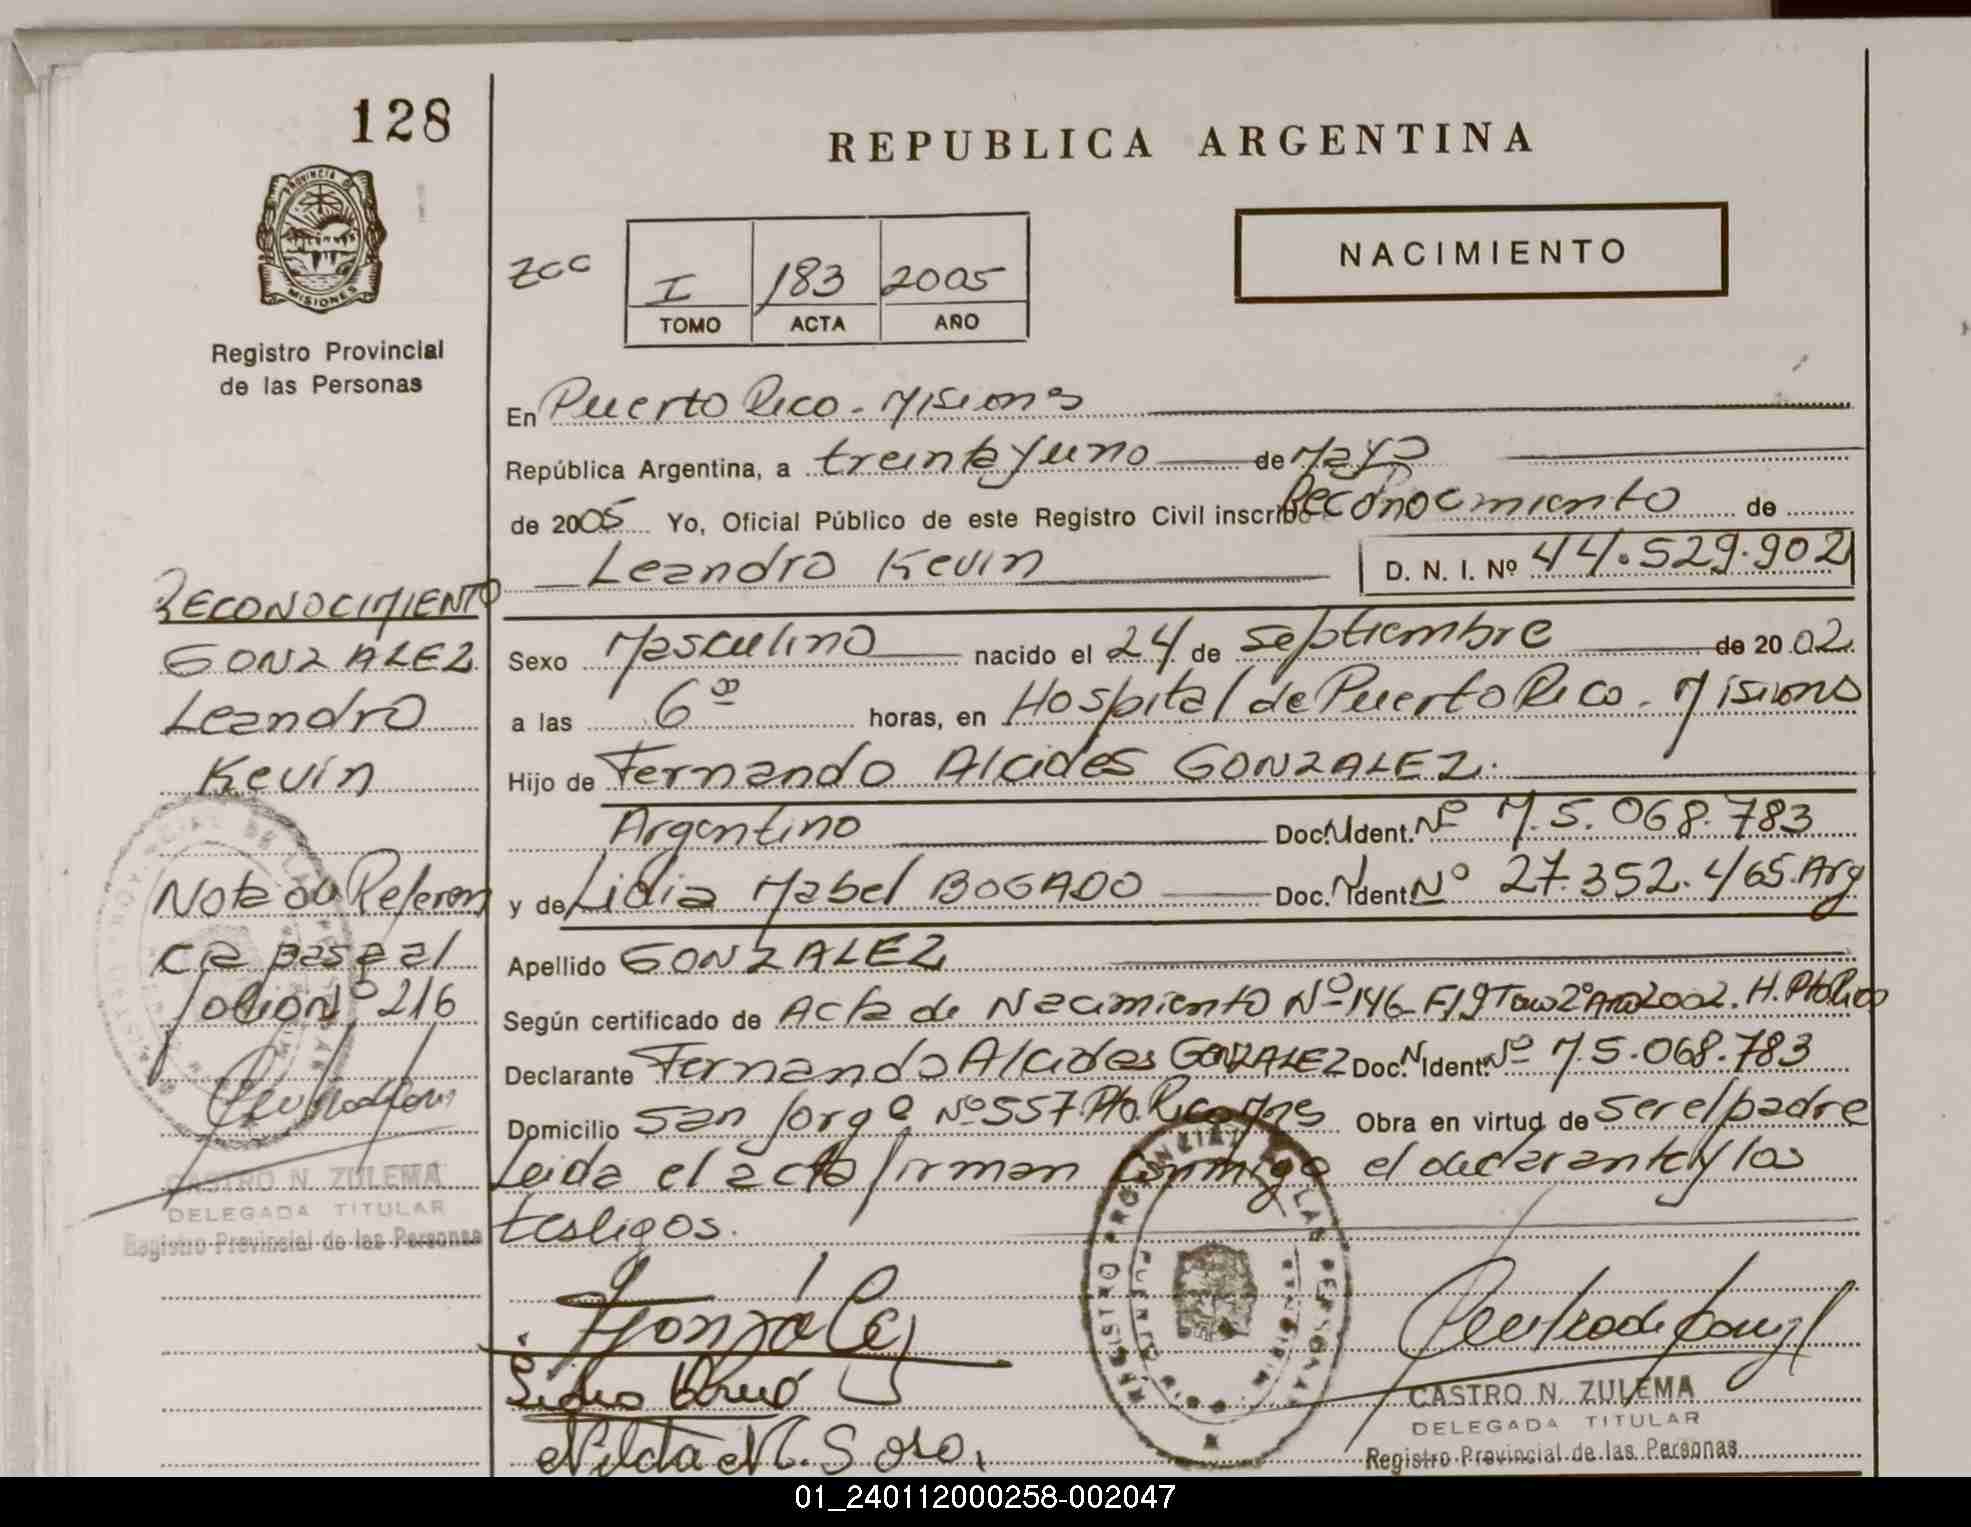 128
REPUBLICA ARGENTINA
PROVINCIA DE
MISIONES
Registro Provincial
de las Personas
NACIMIENTO
zcc
I 183 2005
TOMO ACTA AÑO
En Puerto Rico - Misiones
República Argentina, a treinta y uno de Mayo
de 2005 Yo, Oficial Público de este Registro Civil inscribo Reconocimiento de
Leandro Kevin D. N. I. Nº 44.529.902
Sexo Masculino nacido el 24 de Septiembre de 2002.
a las 6 horas, en Hospital de Puerto Rico - Misiones
Hijo de Fernando Alcides GONZALEZ.
Argentino Doc. N Ident. Nº M.5.068.783
y de Lidia Mabel BOGADO Doc. N Ident. Nº 27.352.465. Arg
Apellido GONZALEZ
Según certificado de Acta de Nacimiento Nº 146- F19 Tomo 2º Año 2002. H. Pto Rico
Declarante Fernando Alcides GONZALEZ Doc. N Ident. Nº M.5.068.783
Domicilio San Jorge Nº 557. Pto. Rico Mnes Obra en virtud de ser el padre
Leida el acta firman conmigo el declarante y los
testigos.
RECONOCIMIENTO
GONZALEZ
Leandro
Kevin
Nota de Referen
cia pasa al
folio Nº 216
CASTRO N. ZULEMA
DELEGADA TITULAR
Registro Provincial de las Personas
Gonzalez
Nilda M. Soso.
REGISTRO PROVINCIAL DE LAS PERSONAS
CASTRO N. ZULEMA
DELEGADA TITULAR
Registro Provincial de las Personas
01_240112000258-002047